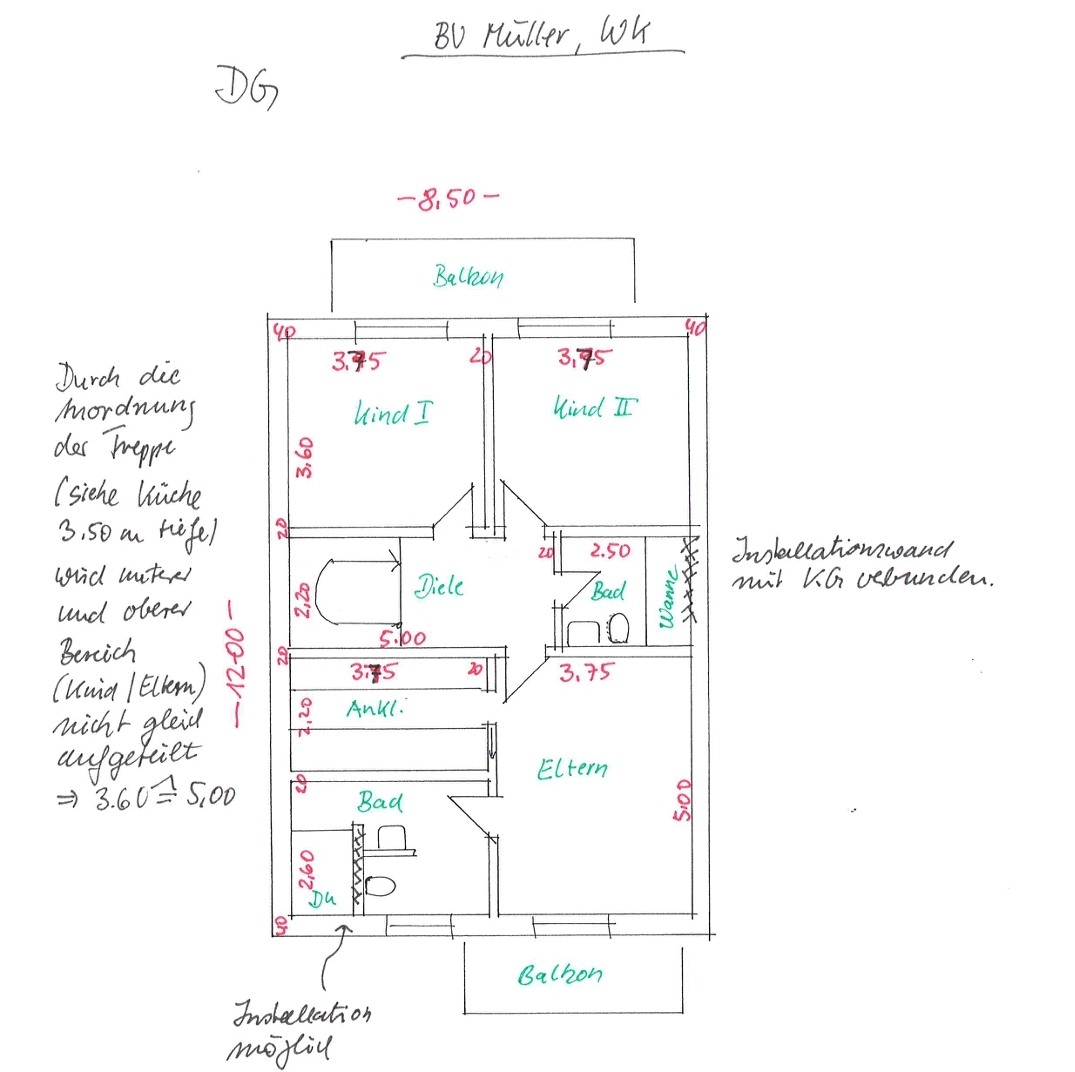 BV Müller, WK
DG
-8,50-
Balkon
40
40
3.75
20
3,75
Kind I
Kind II
3.60
Durch die
Anordnung
der Treppe
(siehe Küche
3.50 m tiefe)
wird unterer
und oberer
Bereich
(Kind/Eltern)
nicht gleich
aufgeteilt
⇒ 3.60 ≙ 5,00
20
20
2.50
Installationswand
mit KG vebunden.
Diele
Bad
Wanne
2,20
5.00
-12.00-
20
3.75
20
3.75
Ankl.
2,20
Eltern
20
Bad
5.00
2,60
Du
40
Balkon
Installation
möglich